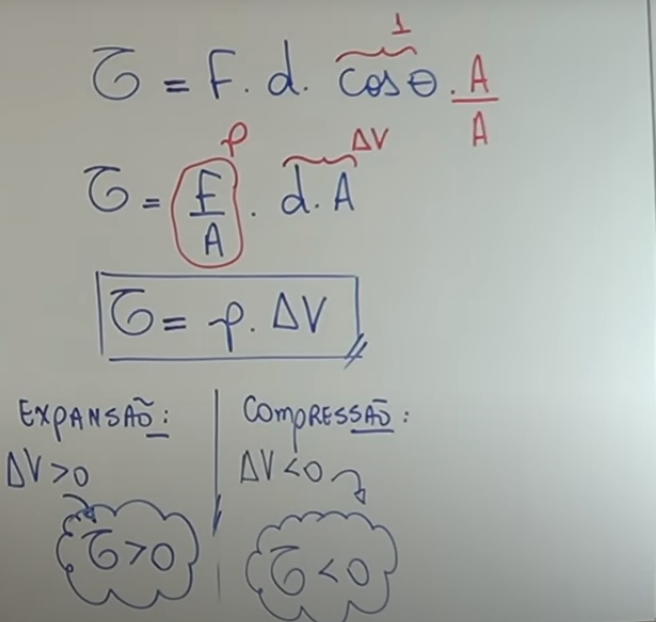 1
τ = F. d. cosθ . A/A
p ΔV
τ = F/A . d.A
τ = p. ΔV
EXPANSÃO:
ΔV>0
τ>0
COMPRESSÃO:
ΔV<0
τ<0